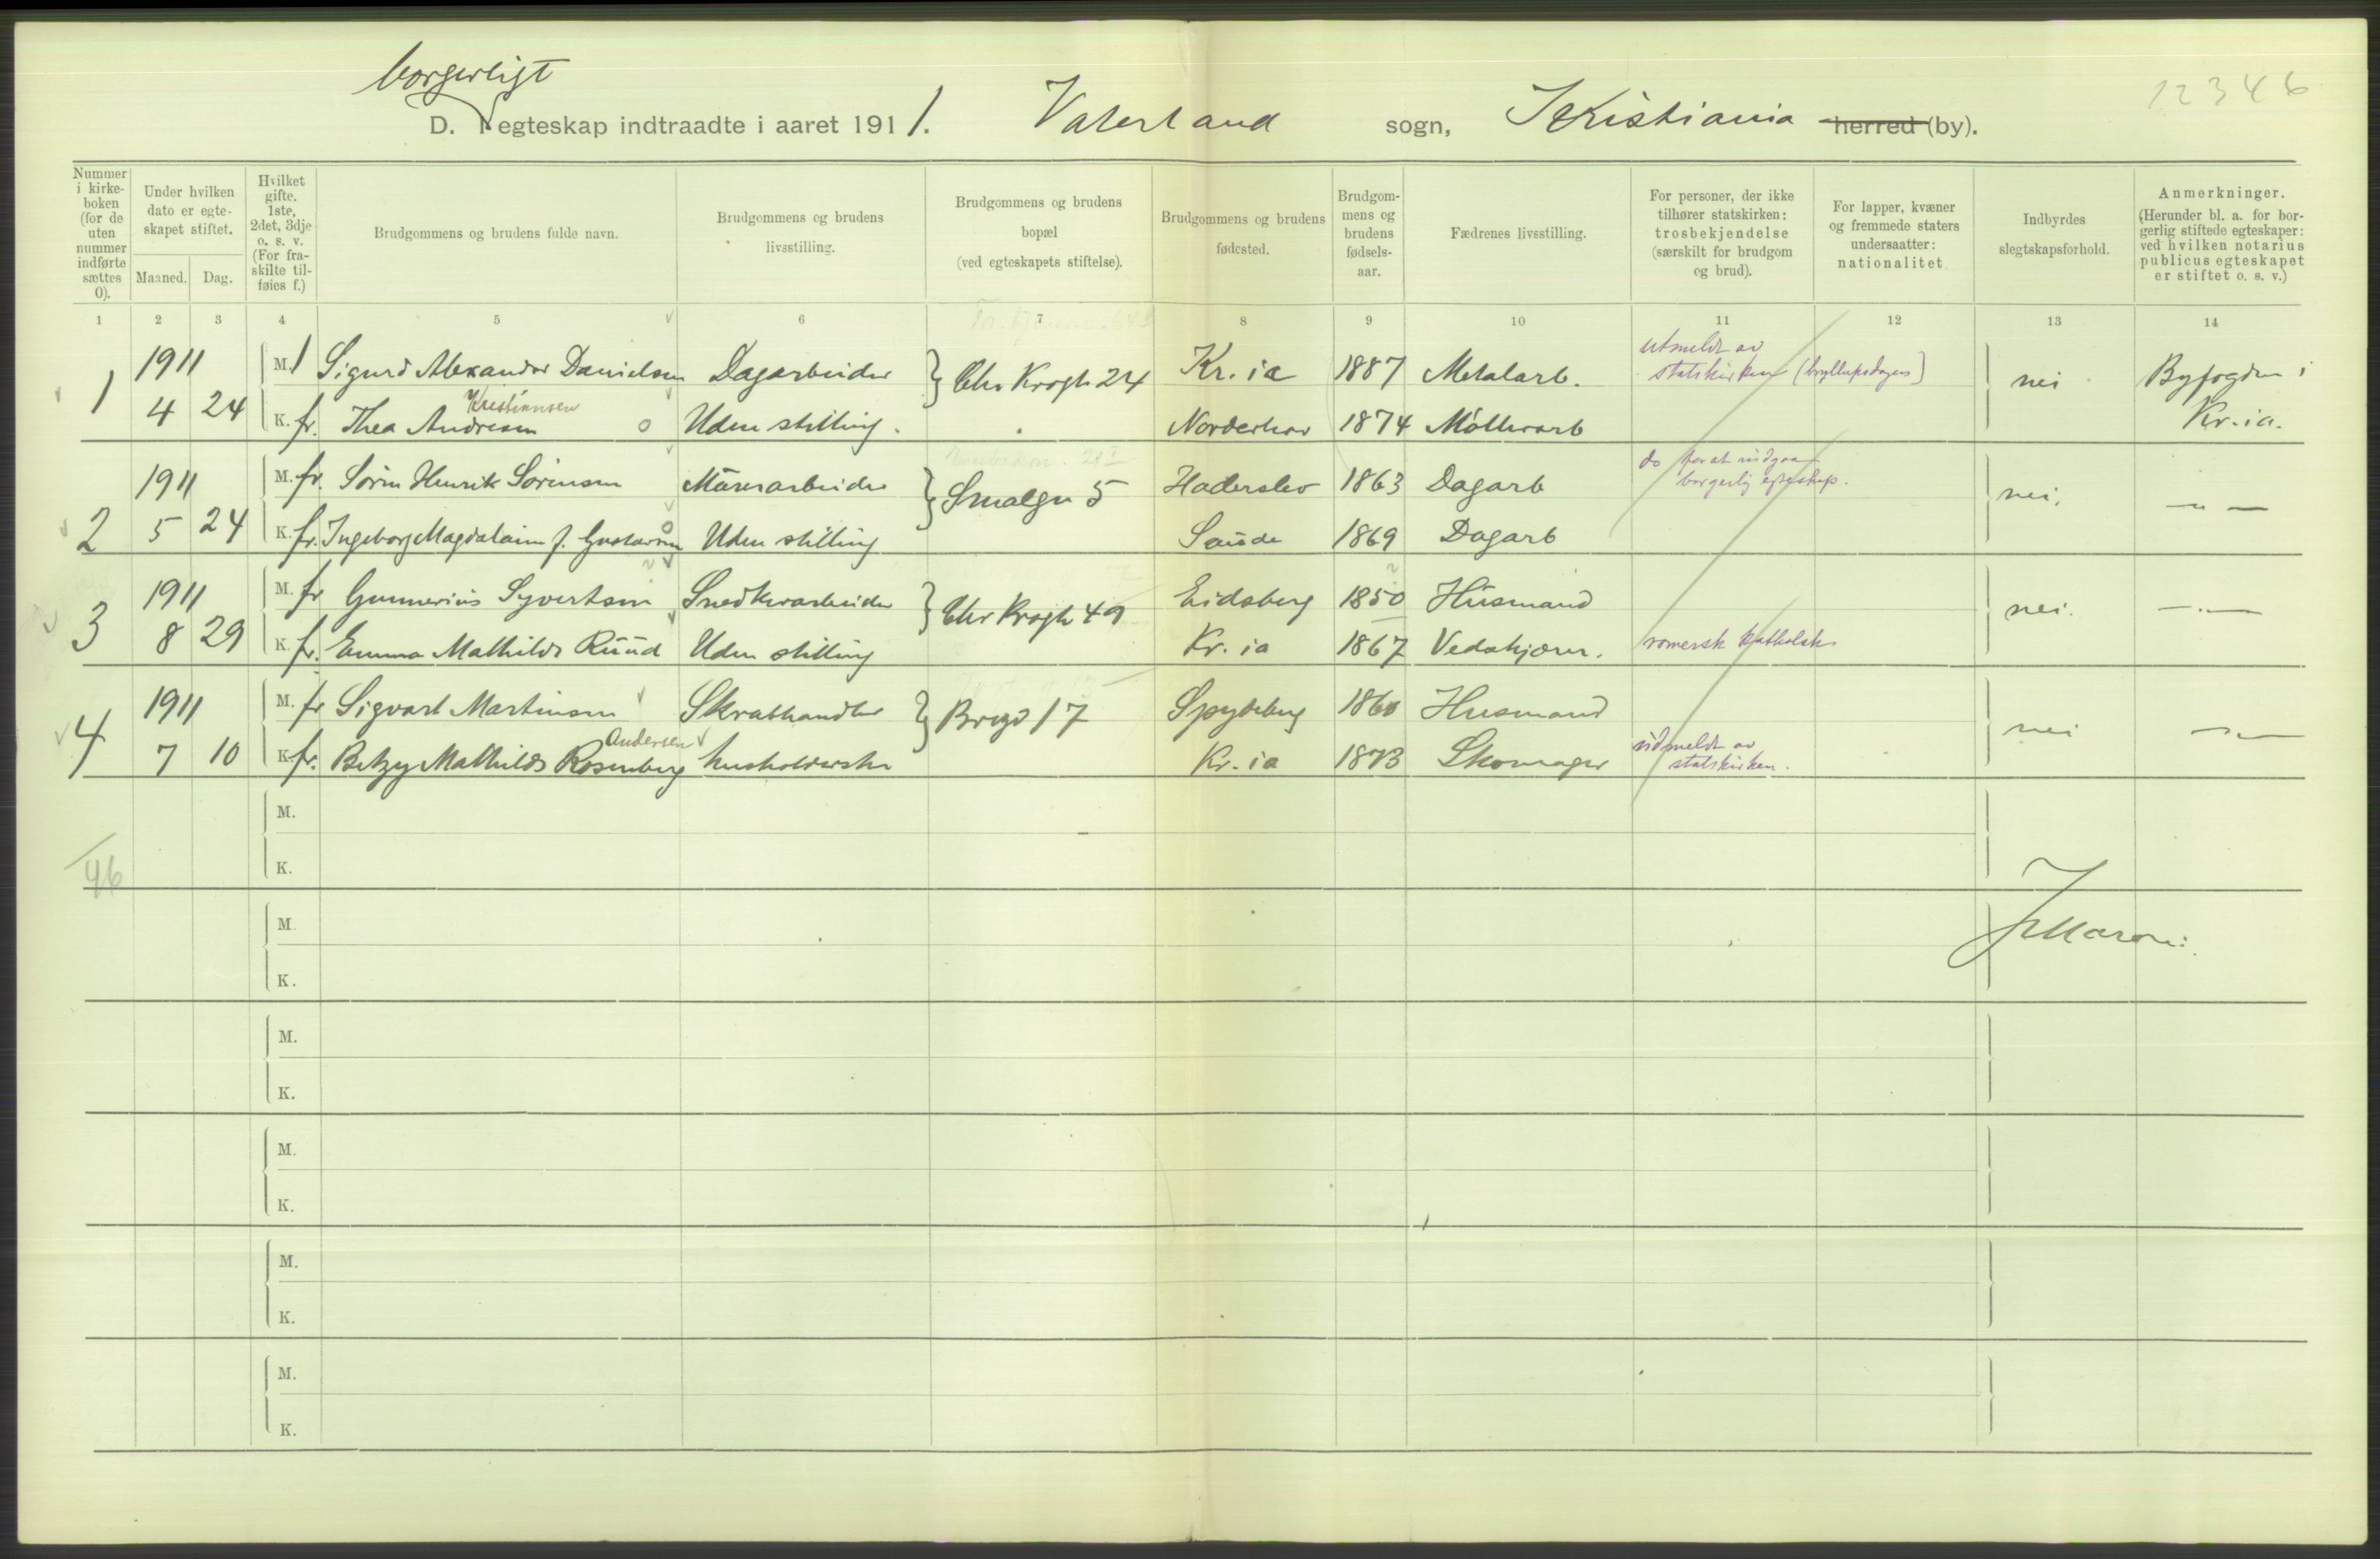 borgerligt
D. I egteskap indtraadte i aaret 1911. Vaterland sogn, Kristiania herred (by).
12346
Nummer i kirkeboken (for de uten nummer indførte sættes 0).
Under hvilken dato er egteskapet stiftet.
Maaned. Dag.
Hvilket gifte. 1ste, 2det, 3dje o. s. v. (For fraskilte tilføies f.)
Brudgommens og brudens fulde navn.
Brudgommens og brudens livsstilling.
Brudgommens og brudens bopæl (ved egteskapets stiftelse).
Brudgommens og brudens fødested.
Brudgommens og brudens fødselsaar.
Fædrenes livsstilling.
For personer, der ikke tilhører statskirken: trosbekjendelse (særskilt for brudgom og brud).
For lapper, kvæner og fremmede staters undersaatter: nationalitet
Indbyrdes slegtskapsforhold.
Anmerkninger. (Herunder bl. a. for borgerlig stiftede egteskaper: ved hvilken notarius publicus egteskapet er stiftet o. s. v.)
1 2 3 4 5 6 7 8 9 10 11 12 13 14
1911 M. 1 Sigurd Alexander Danielsen Dagarbeider } Chr Krogh 24 Kr.ia 1887 Metalarb. utmeldt av statskirken (bryllupsdagen) nei Byfogden i
1 4 24 K. fr. Thea Andresen Kristiansen Uden stilling. Norderhov 1874 Møllerarb Kr.ia.
1911 M. fr. Sørin Henrik Sørensen Murerarbeider } Smalgn 5 Haderslev 1863 Dagarb do for at indgaa borgerlig egteskap. nei. — " —
2 5 24 K. fr. Ingeborg Magdalaine f. Gustavsen Uden stilling Saude 1869 Dagarb
1911 M. fr Gunnerius Syvertsen Snedkerarbeider } Chr Krogh 49 Eidsberg 1850 Husmand nei. — " —
3 8 29 K. fr. Emma Mathilde Ruud Uden stilling Kr.ia 1867 Vedskjærer. romersk katholsk
1911 M. fr Sigvart Martinsen Skraphandler } Brogd 17 Spydeberg 1860 Husmand nei — " —
4 7 10 K. fr. Betzy Mathilde Rosenberg Andersen husholderske Kr.ia 1873 Skomager udmeldt av statskirken.
M.
K.
46
M.
K.
M.
K.
M.
K.
M.
K.
M.
K.